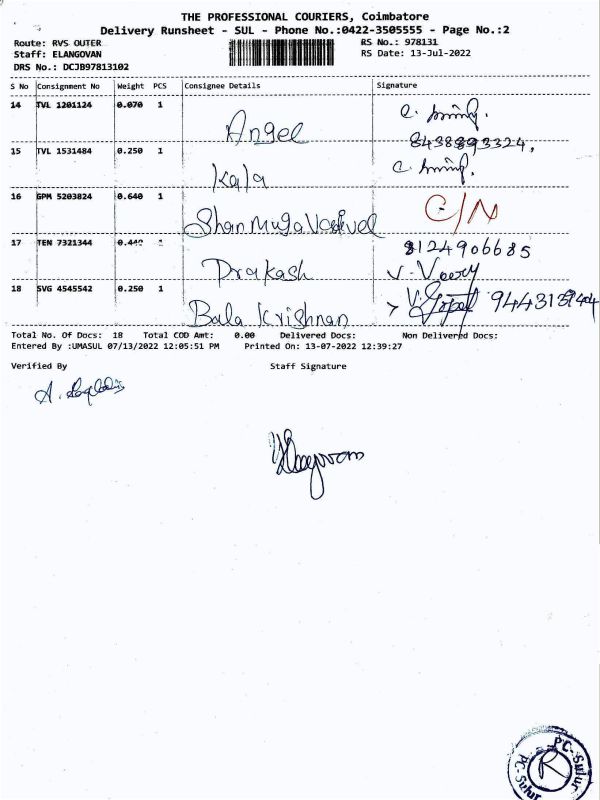 THE PROFESSIONAL COURIERS, Coimbatore
Delivery Runsheet - SUL - Phone No.:0422-3505555 - Page No.:2
Route: RVS OUTER RS No.: 978131
Staff: ELANGOVAN RS Date: 13-Jul-2022
DRS No.: DCJB97813102
S No Consignment No Weight PCS Consignee Details Signature
14 TVL 1201124 0.070 1 Angel
8438893324,
15 TVL 1531484 0.250 1 Kala
16 GPM 5203824 0.640 1 Shanmuga Vadivel C/N
17 TEN 7321344 0.440 1 Prakash 8124906685
18 SVG 4545542 0.250 1 Bala Krishnan
Total No. Of Docs: 18 Total COD Amt: 0.00 Delivered Docs: Non Delivered Docs:
Entered By :UMASUL 07/13/2022 12:05:51 PM Printed On: 13-07-2022 12:39:27
Verified By Staff Signature
PC-Sulur
R
PC-Sulur